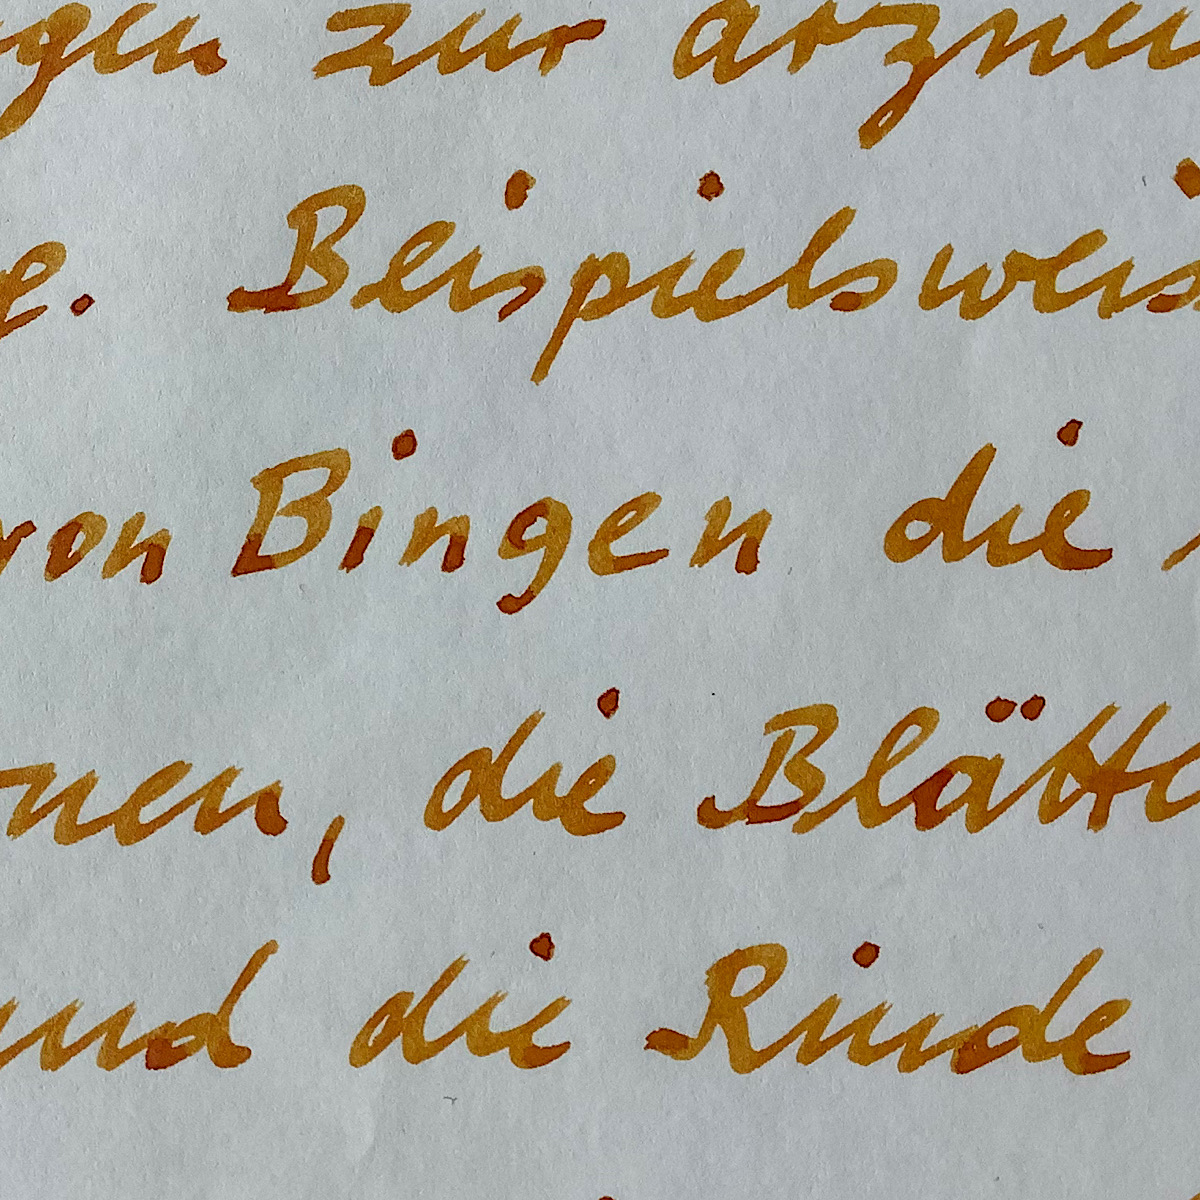 gen zur arznei
e. Beispielsweis
von Bingen die
nen, die Blätte
und die Rinde